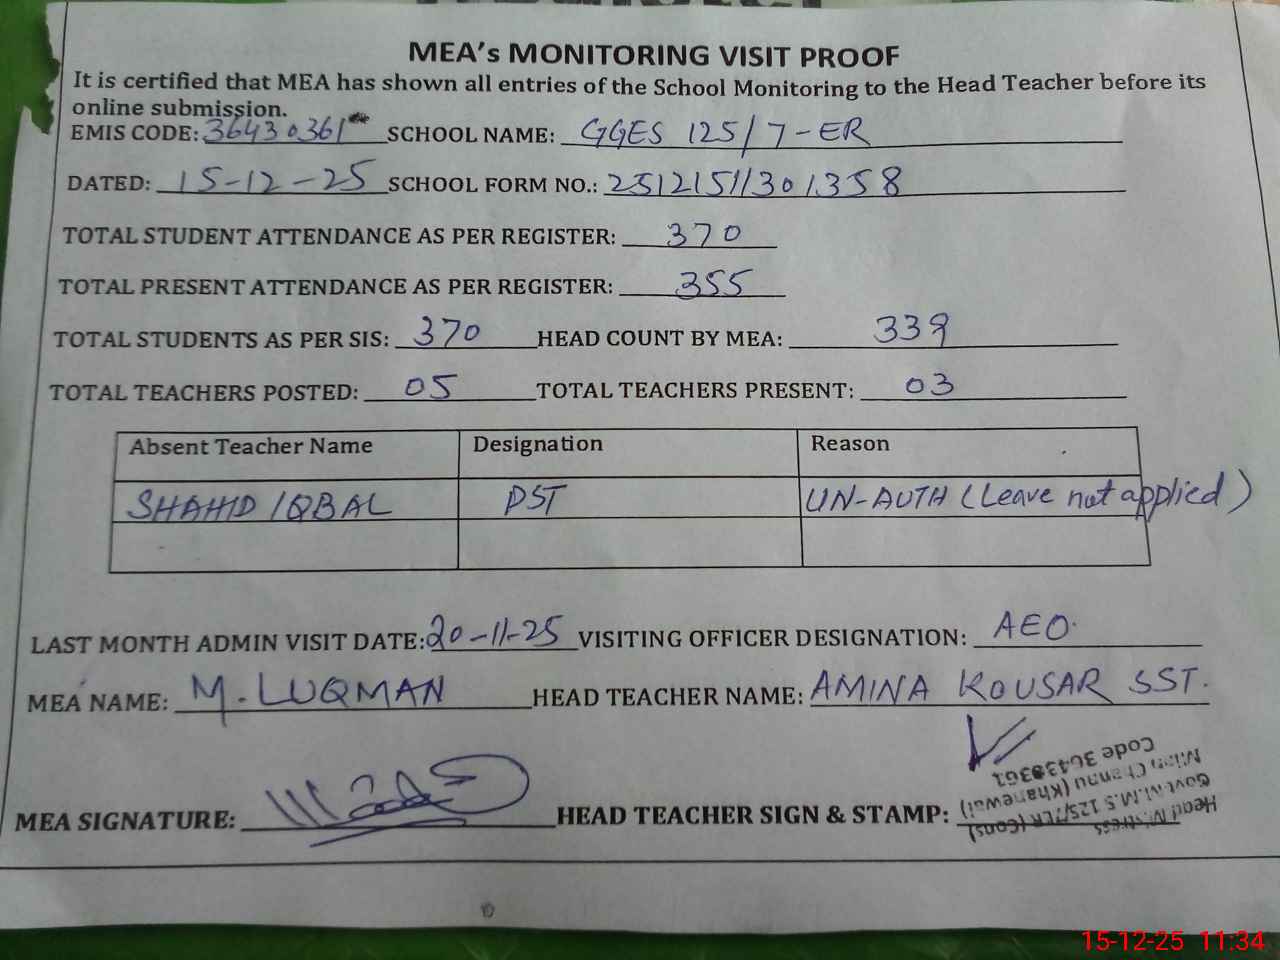 MEA's MONITORING VISIT PROOF
It is certified that MEA has shown all entries of the School Monitoring to the Head Teacher before its
online submission.
EMIS CODE: 36430361 SCHOOL NAME: GGES 125/7-ER
DATED: 15-12-25 SCHOOL FORM NO.: 25121511301358
TOTAL STUDENT ATTENDANCE AS PER REGISTER: 370
TOTAL PRESENT ATTENDANCE AS PER REGISTER: 355
TOTAL STUDENTS AS PER SIS: 370 HEAD COUNT BY MEA: 339
TOTAL TEACHERS POSTED: 05 TOTAL TEACHERS PRESENT: 03
Absent Teacher Name Designation Reason
SHAHID IQBAL PST UN-AUTH (Leave not applied)
LAST MONTH ADMIN VISIT DATE: 20-11-25 VISITING OFFICER DESIGNATION: AEO.
MEA NAME: M. LUQMAN HEAD TEACHER NAME: AMINA KOUSAR SST.
MEA SIGNATURE: HEAD TEACHER SIGN & STAMP:
Head Mistress
Govt. M.M.S 125/7ER (Cons)
Mian Channu (Khanewal)
Code 36430361
15-12-25 11:34